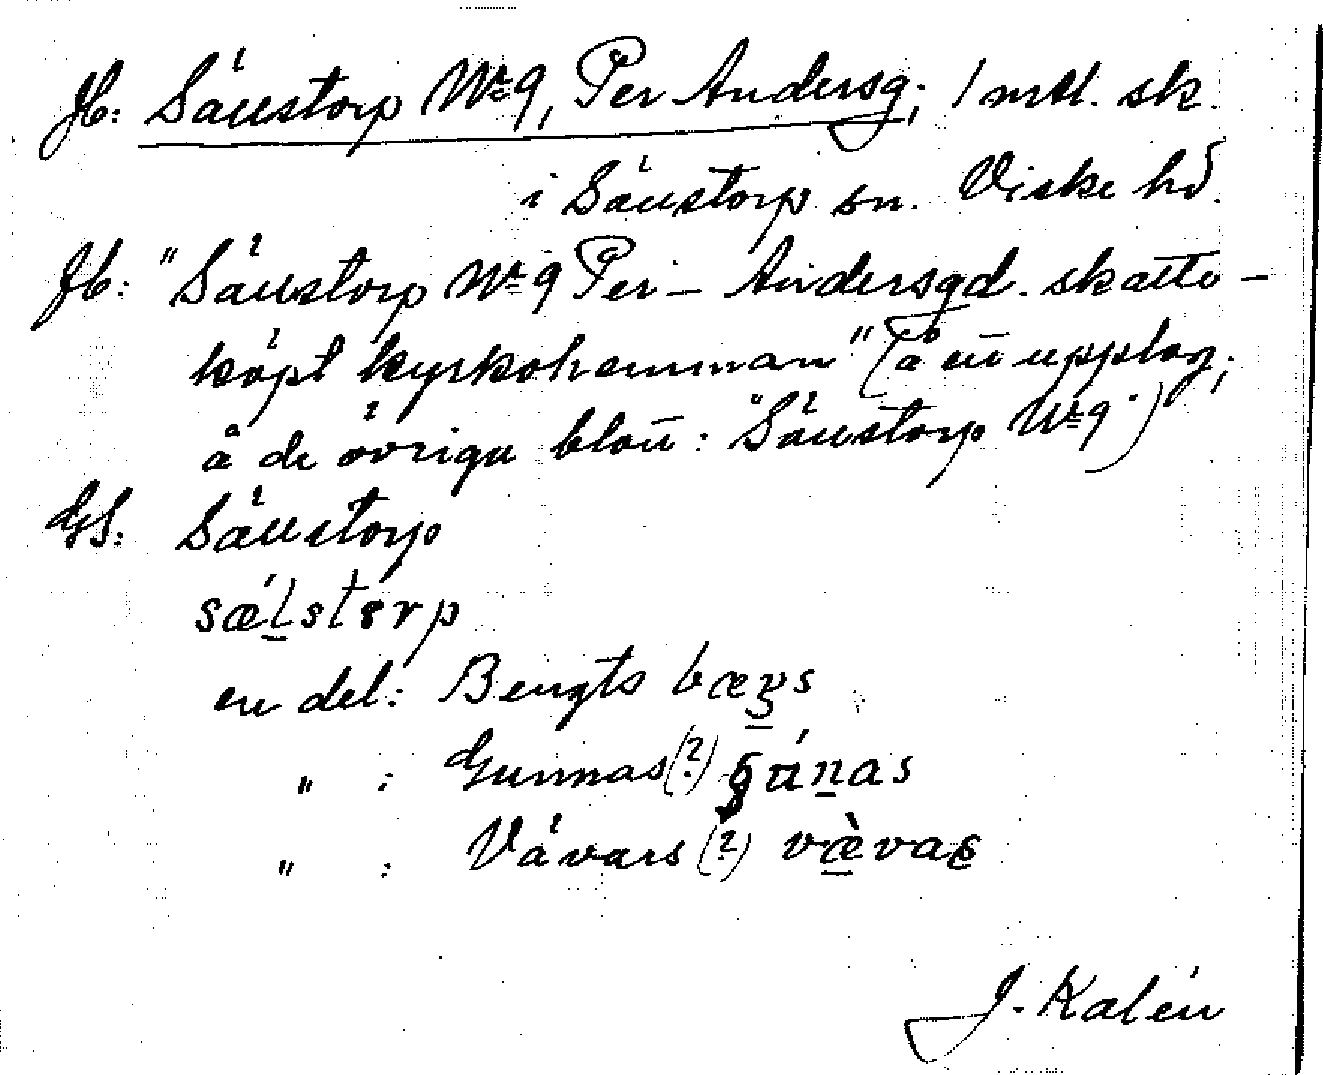 Jb: Sällstorp Nr 9, Per Andersg; 1 mtl. sk
i Sällstorp sn. Viske hd.
Jb: "Sällstorp Nr 9 Per-Andersgd. skatte-
köpt kyrkohemman" (å en upplag;
å de övriga blott: "Sällstorp Nr 9")
GS: Sällstorp
sǽlstorp
en del: Bengts bæŋs
" : Gunnas (?) gánas
" : Vävars (?) væ̀vas
J. Kalén